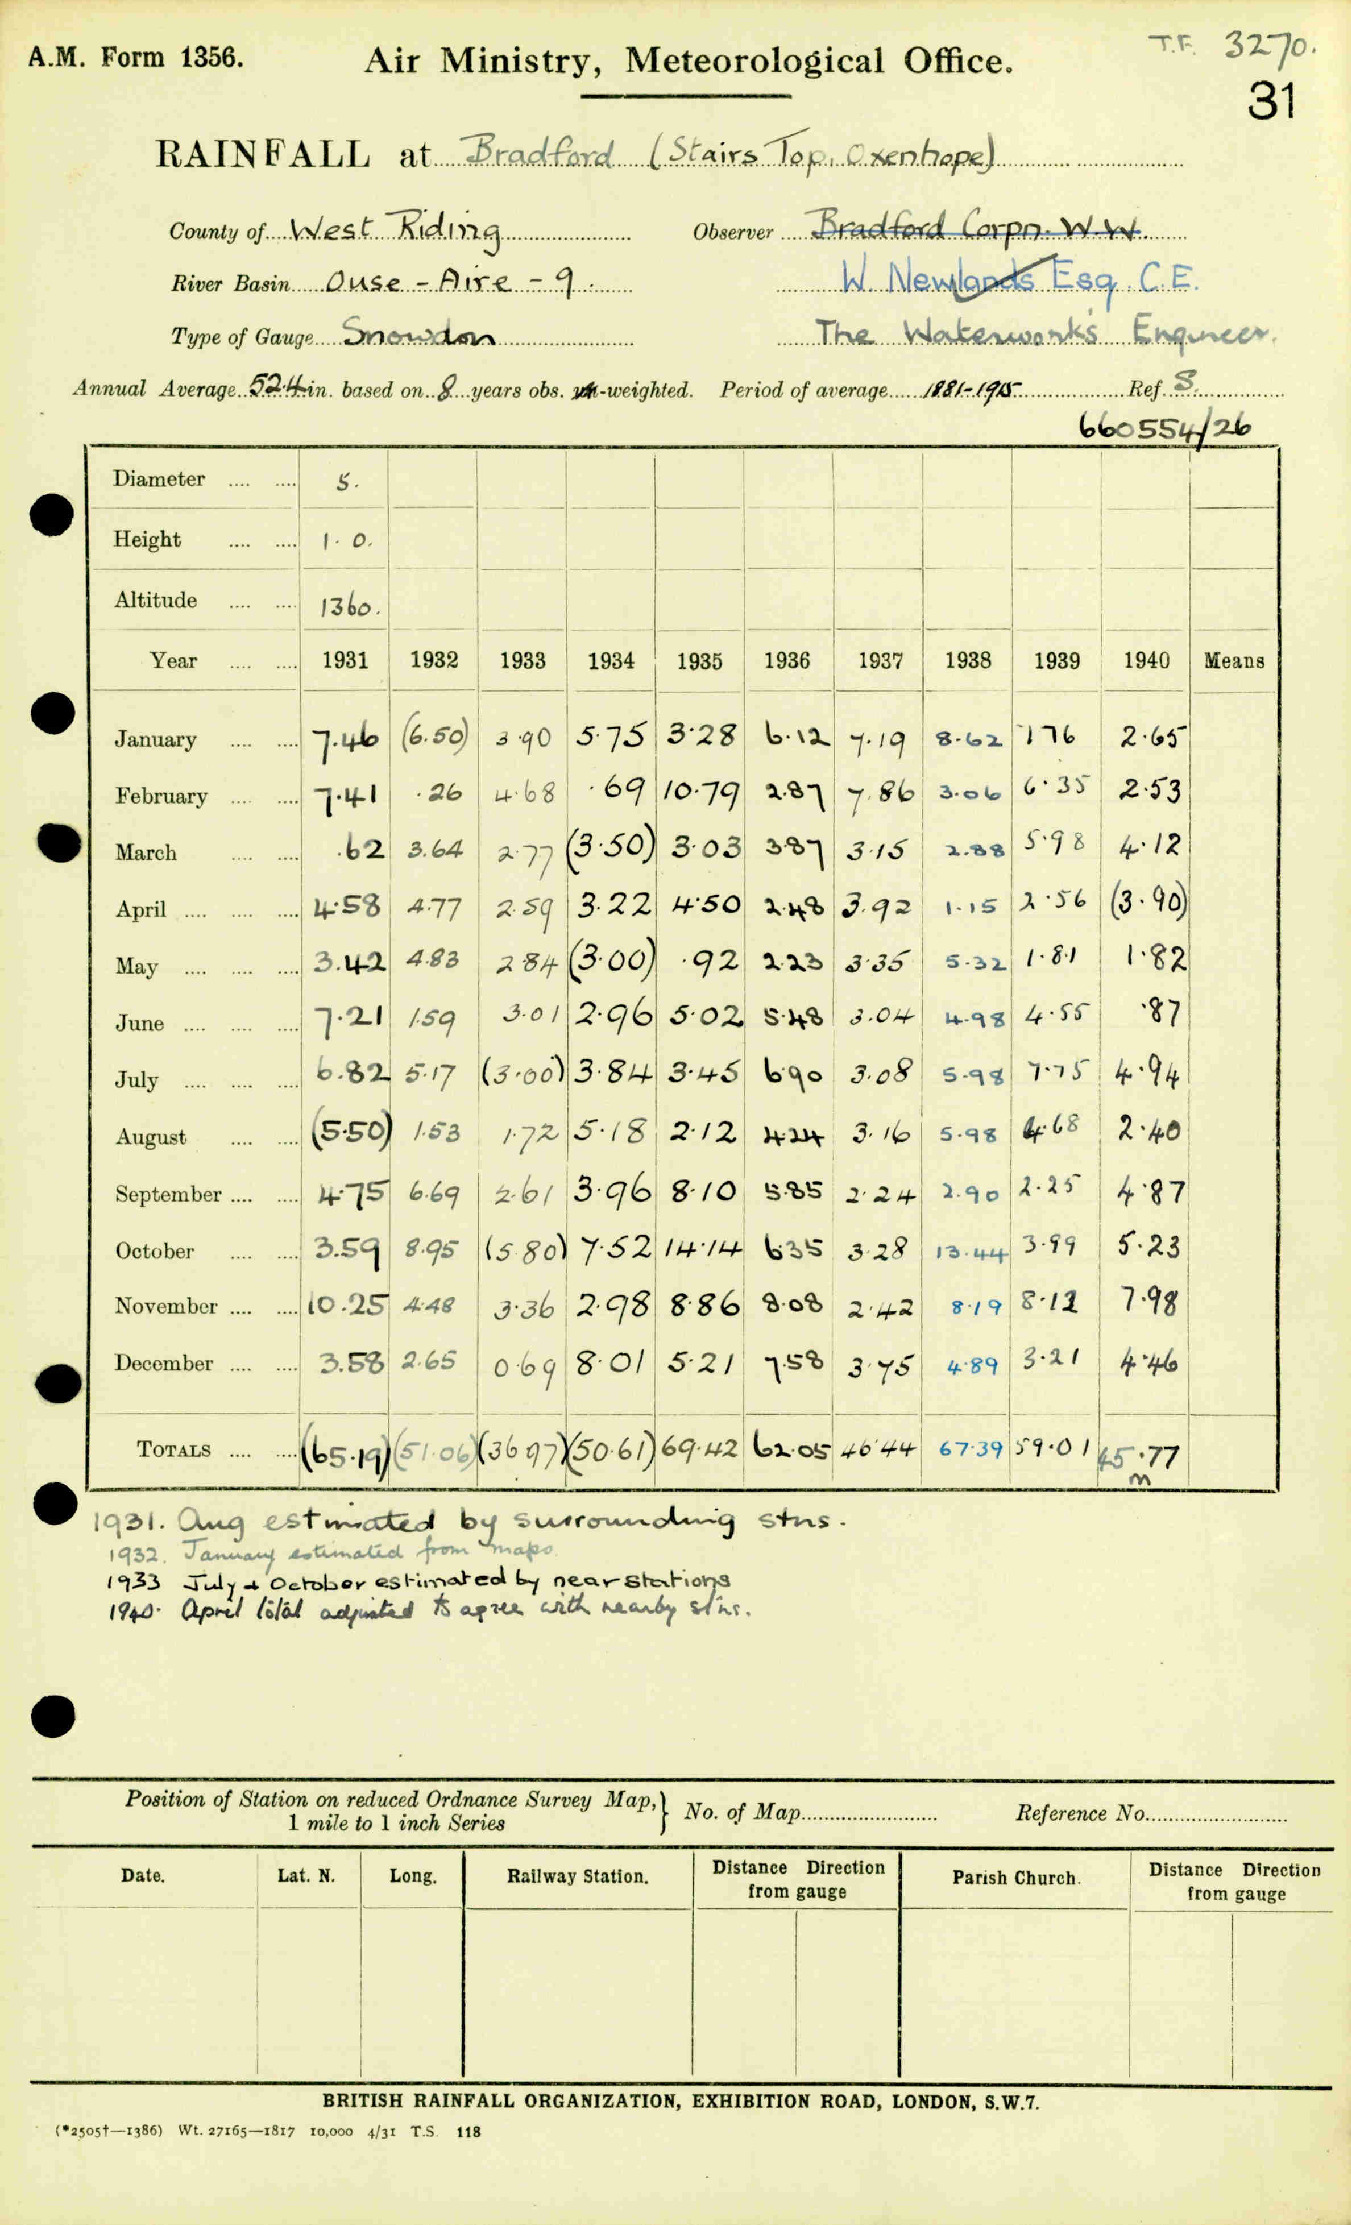 A.M. Form 1356. Air Ministry, Meteorological Office. T.F. 3270.
31
RAINFALL at Bradford (Stairs Top, Oxenhope)
County of West Riding Observer Bradford Corpn. W.W.
River Basin Ouse - Aire - 9. W. Newlands Esq. C.E.
Type of Gauge Snowdon The Waterworks Engineer.
Annual Average 52.4 in. based on 8 years obs. un-weighted. Period of average 1881-1915 Ref. S.
660554/26
Diameter .... .... 5.
Height .... .... 1. 0.
Altitude .... .... 1360.
Year .... .... 1931 1932 1933 1934 1935 1936 1937 1938 1939 1940 Means
January .... .... 7.46 (6.50) 3.90 5.75 3.28 6.12 7.19 8.62 7.76 2.65
February .... .... 7.41 .26 4.68 .69 10.79 2.87 7.86 3.06 6.35 2.53
March .... .... .62 3.64 2.77 (3.50) 3.03 3.87 3.15 2.88 5.98 4.12
April .... .... .... 4.58 4.77 2.59 3.22 4.50 2.48 3.92 1.15 2.56 (3.90)
May .... .... .... 3.42 4.83 2.84 (3.00) .92 2.23 3.35 5.32 1.81 1.82
June .... .... .... 7.21 1.59 3.01 2.96 5.02 5.48 3.04 4.98 4.55 .87
July .... .... .... 6.82 5.17 (3.00) 3.84 3.45 6.90 3.08 5.98 7.75 4.94
August .... .... (5.50) 1.53 1.72 5.18 2.12 4.24 3.16 5.98 4.68 2.40
September .... .... 4.75 6.69 2.61 3.96 8.10 5.85 2.24 2.90 2.25 4.87
October .... .... 3.59 8.95 (5.80) 7.52 14.14 6.35 3.28 13.44 3.99 5.23
November .... .... 10.25 4.48 3.36 2.98 8.86 8.08 2.42 8.19 8.12 7.98
December .... .... 3.58 2.65 0.69 8.01 5.21 7.58 3.75 4.89 3.21 4.46
TOTALS .... .... (65.19) (51.06) (36.97) (50.61) 69.42 62.05 46.44 67.39 59.01 45.77
m
1931. Aug estimated by surrounding stns.
1932. January estimated from maps.
1933 July + October estimated by near stations
1940. April total adjusted to agree with nearby stns.
Position of Station on reduced Ordnance Survey Map,} No. of Map Reference No.
1 mile to 1 inch Series
Date. Lat. N. Long. Railway Station. Distance Direction from gauge Parish Church. Distance Direction from gauge
BRITISH RAINFALL ORGANIZATION, EXHIBITION ROAD, LONDON, S.W.7.
(*2505†—1386) Wt. 27165—1817 10,000 4/31 T.S. 118